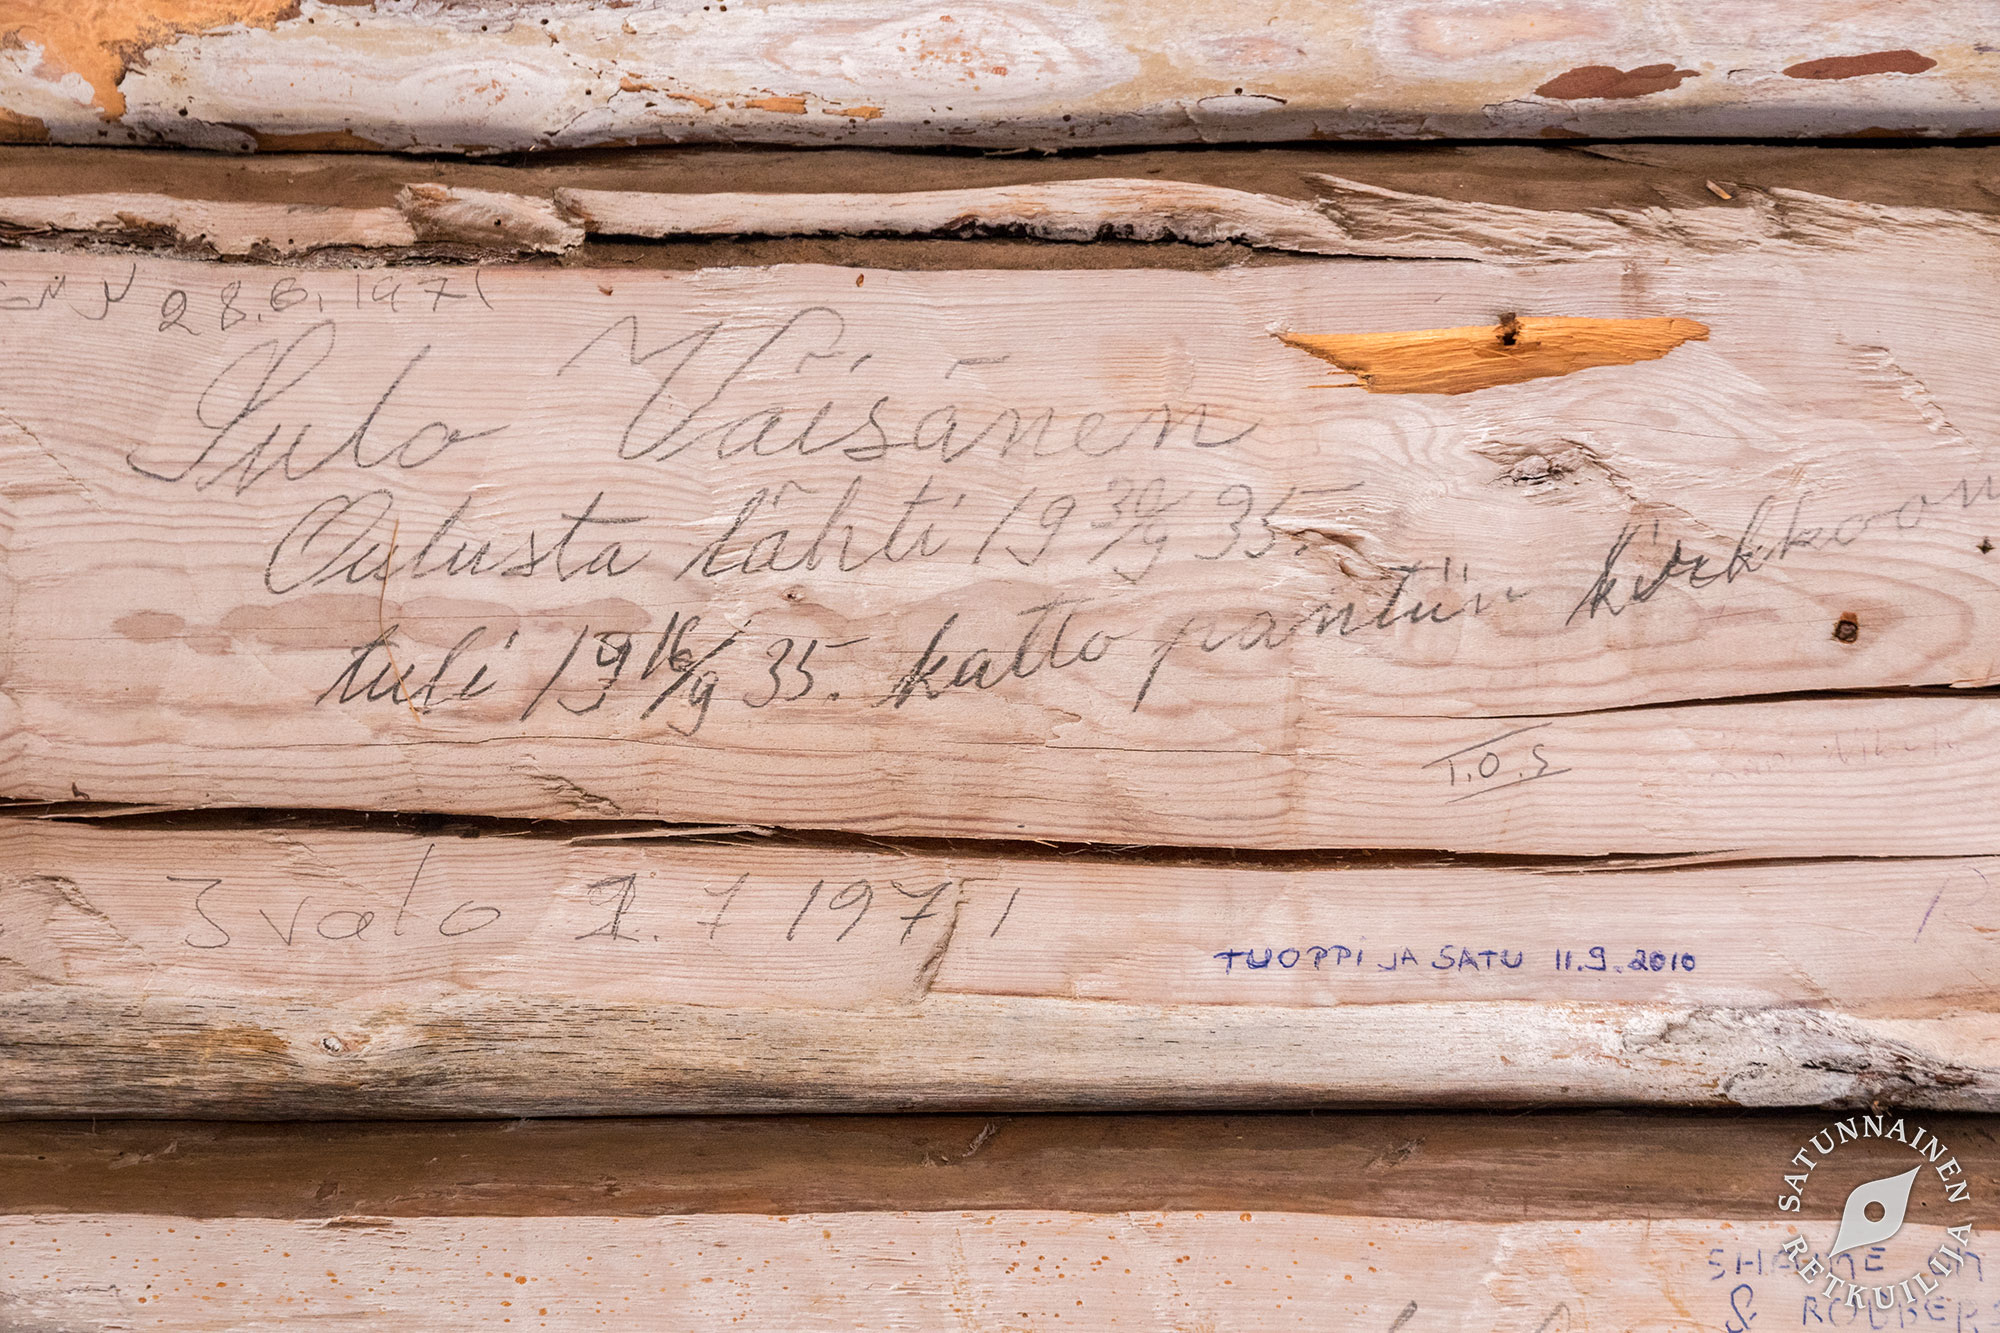 28.6.1971
Sulo Väisänen
Oulusta lähti 19 30/9 35.
tuli 19 16/9 35. katto pantiin kirkkoon
T.O.S
Ivalo 2.7 1971
TUOPPI JA SATU 11.9.2010
SATUNNAINEN RETKUILIJA